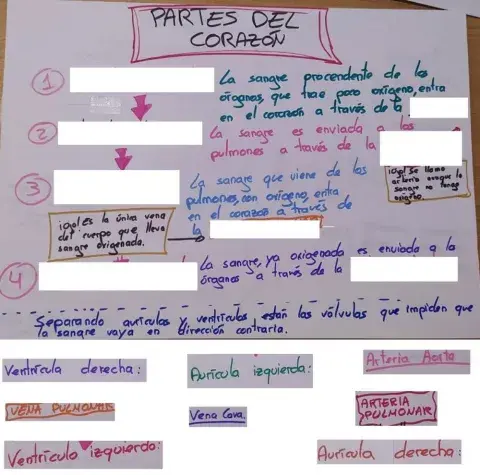 PARTES DEL
CORAZÓN
1
La sangre procendente de los
órganos, que trae poco oxígeno, entra
en el corazón a través de la
2
La sangre es enviada a los
pulmones a través de la
3
La sangre que viene de los
pulmones, con oxígeno, entra
en el corazón a través de
la
¡ojo! Se llama
arteria aunque la
sangre no tenga
oxígeno.
¡ojo! Es la única vena
del cuerpo que lleva
sangre oxigenada.
4
La sangre, ya oxigenada es enviada a los
órganos a través de la
Separando aurículas y ventrículos, están las válvulas que impiden que
la sangre vaya en dirección contraria.
Ventrícula derecha:
Aurícula izquierda:
Arteria Aorta
VENA PULMONAR
Vena Cava.
ARTERIA
PULMONAR
Ventrículo izquierdo:
Aurícula derecha: